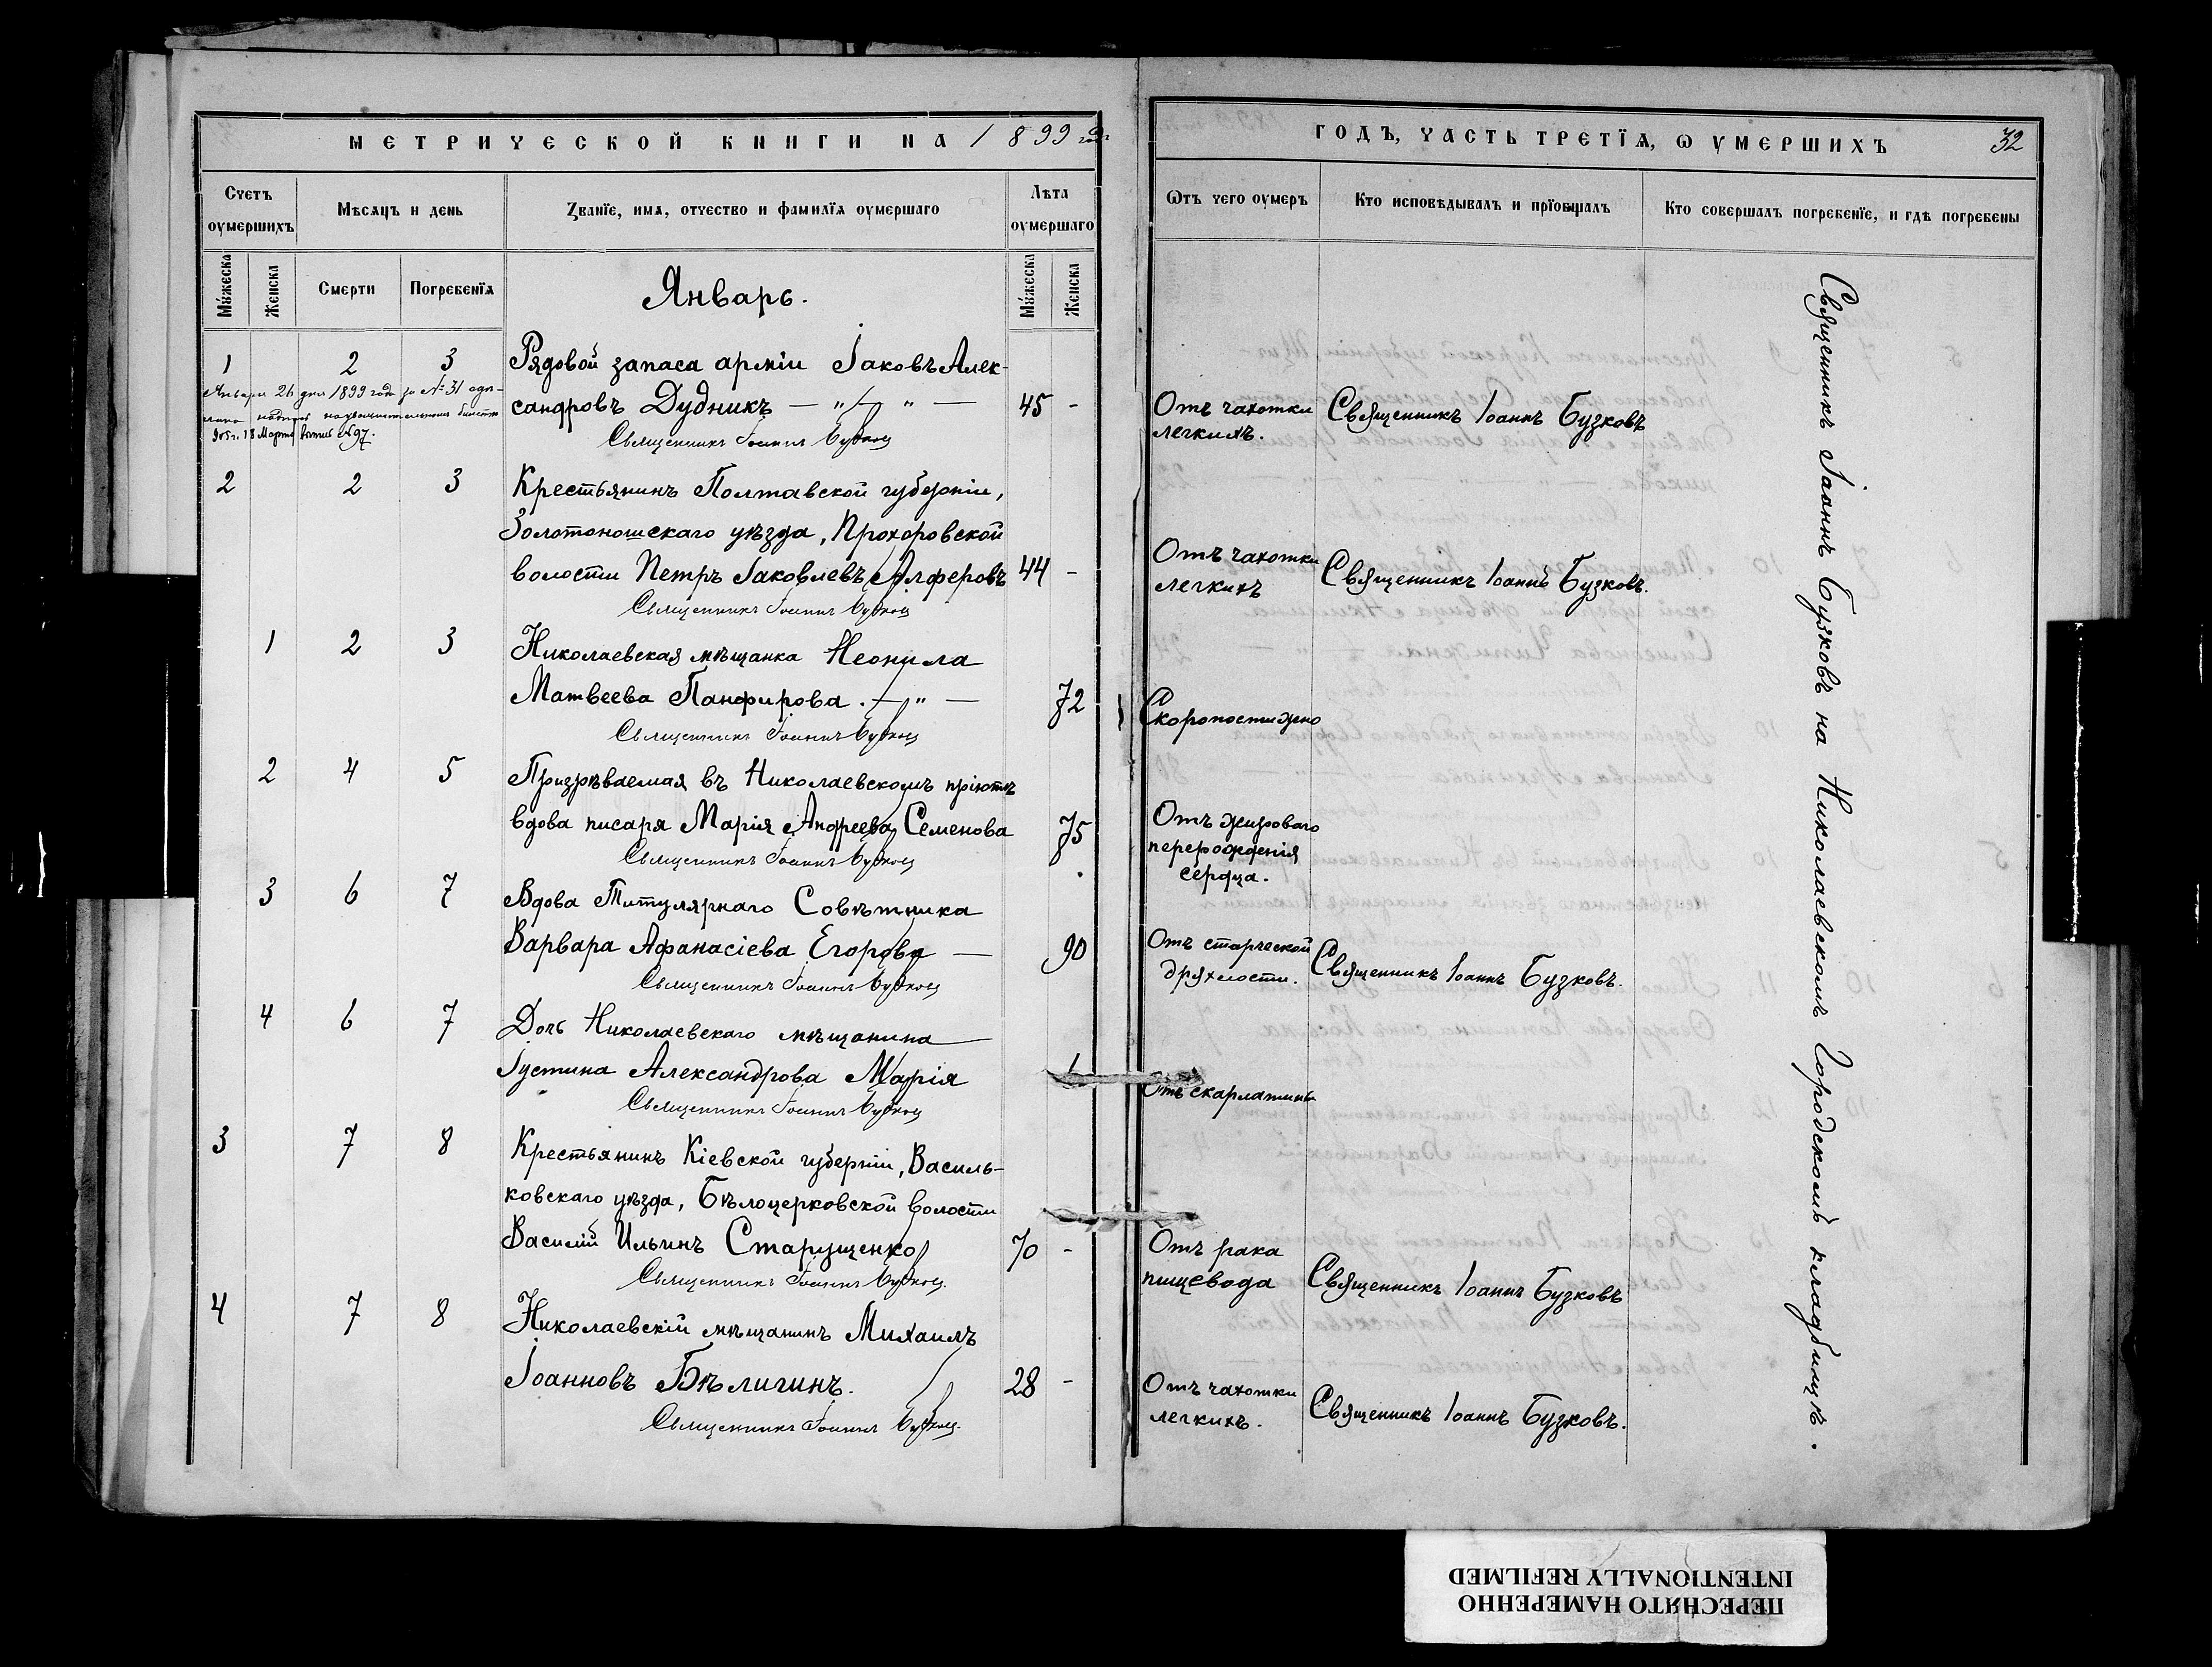 МЕТРИЧЕСКОЙ КНИГИ НА 1899 годъ
Счетъ оумершихъ
Мѣсяцъ и день
Званїе, имѧ, отчество и фамилїѧ оумершаго
Лѣта оумершаго
Мꙋжеска
Женска
Смерти
Погребенїѧ
Мꙋжеска
Женска
Январь.
1 2 3 Рядовой запаса арміи Іаковъ Алек-
сандровъ Дудникъ — " — " — 45 -
Января 26 дня 1899 года за № 31
905 г. 18 Марта № 97.
Священникъ Іоаннъ Бузковъ
2 2 3 Крестьянинъ Полтавской губерніи,
Золотоношскаго уѣзда, Прохоровской
волости Петръ Іаковлевъ Алферовъ 44 -
Священникъ Іоаннъ Бузковъ
1 2 3 Николаевская мѣщанка Неонила
Матвеева Панфирова. — " — 72
Священникъ Іоаннъ Бузковъ
2 4 5 Призрѣваемая въ Николаевскомъ пріютѣ
вдова писаря Марія Андреева Семенова 75
Священникъ Іоаннъ Бузковъ
3 6 7 Вдова Титулярнаго Совѣтника
Варвара Афанасіева Егорова — 90
Священникъ Іоаннъ Бузковъ
4 6 7 Дочь Николаевскаго мѣщанина
Іустина Александрова Марія 1
Священникъ Іоаннъ Бузковъ
3 7 8 Крестьянинъ Кіевской губерніи, Василь-
ковскаго уѣзда, Бѣлоцерковской волости
Василій Ильинъ Старущенко 70 -
Священникъ Іоаннъ Бузковъ.
4 7 8 Николаевскій мѣщанинъ Михаилъ
Іоанновъ Бѣлигинъ. 28 -
Священникъ Іоаннъ Бузковъ.
ГОДЪ, ЧАСТЬ ТРЕТЇѦ, Ѡ УМЕРШИХЪ
32
Ѡтъ чего оумеръ
Кто исповѣдывалъ и прїобщалъ
Кто совершалъ погребенїе, и гдѣ погребены
Отъ чахотки Священникъ Іоаннъ Бузковъ
легкихъ.
Отъ чахотки Священникъ Іоаннъ Бузковъ.
легкихъ
Скоропостижно
Отъ жироваго
перерожденія
сердца.
Отъ старческой Священникъ Іоаннъ Бузковъ.
дряхлости.
Отъ скарлатины
Отъ рака
пищевода Священникъ Іоаннъ Бузковъ
Отъ чахотки Священникъ Іоаннъ Бузковъ.
легкихъ.
Священникъ Іоаннъ Бузковъ на Николаевскомъ Городскомъ кладбищѣ.
ПЕРЕСНЯТО НАМЕРЕННО
INTENTIONALLY REFILMED